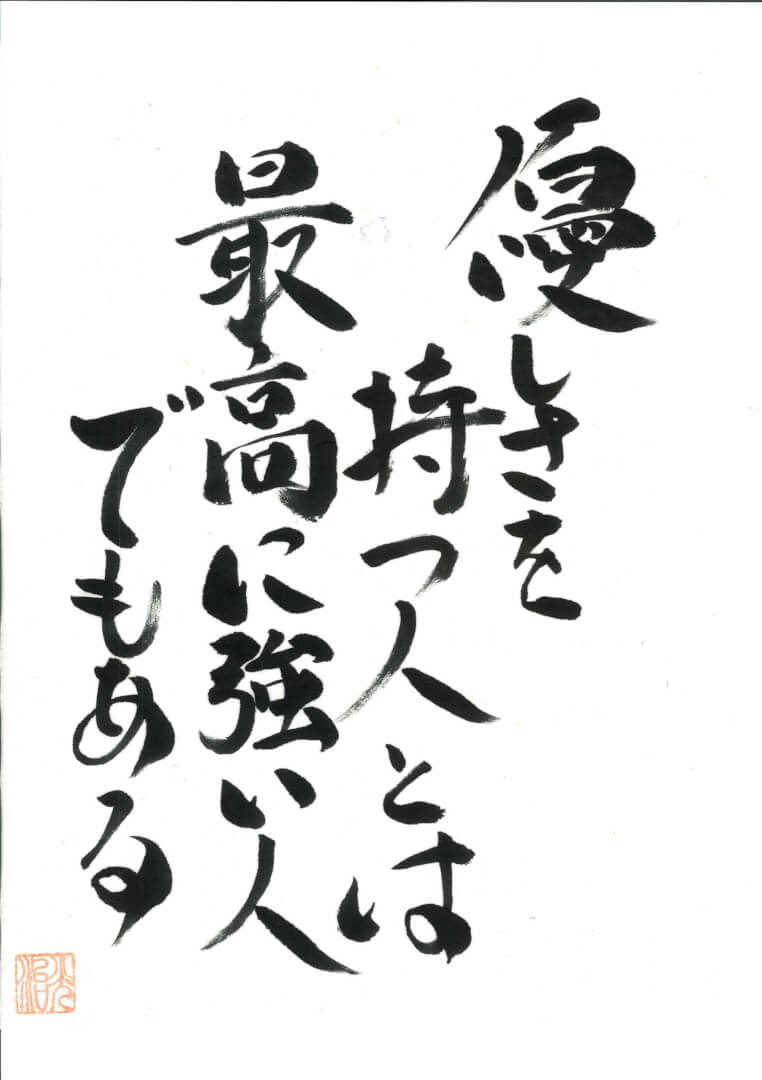 優しさを
持つ人とは
最高に強い人
でもある